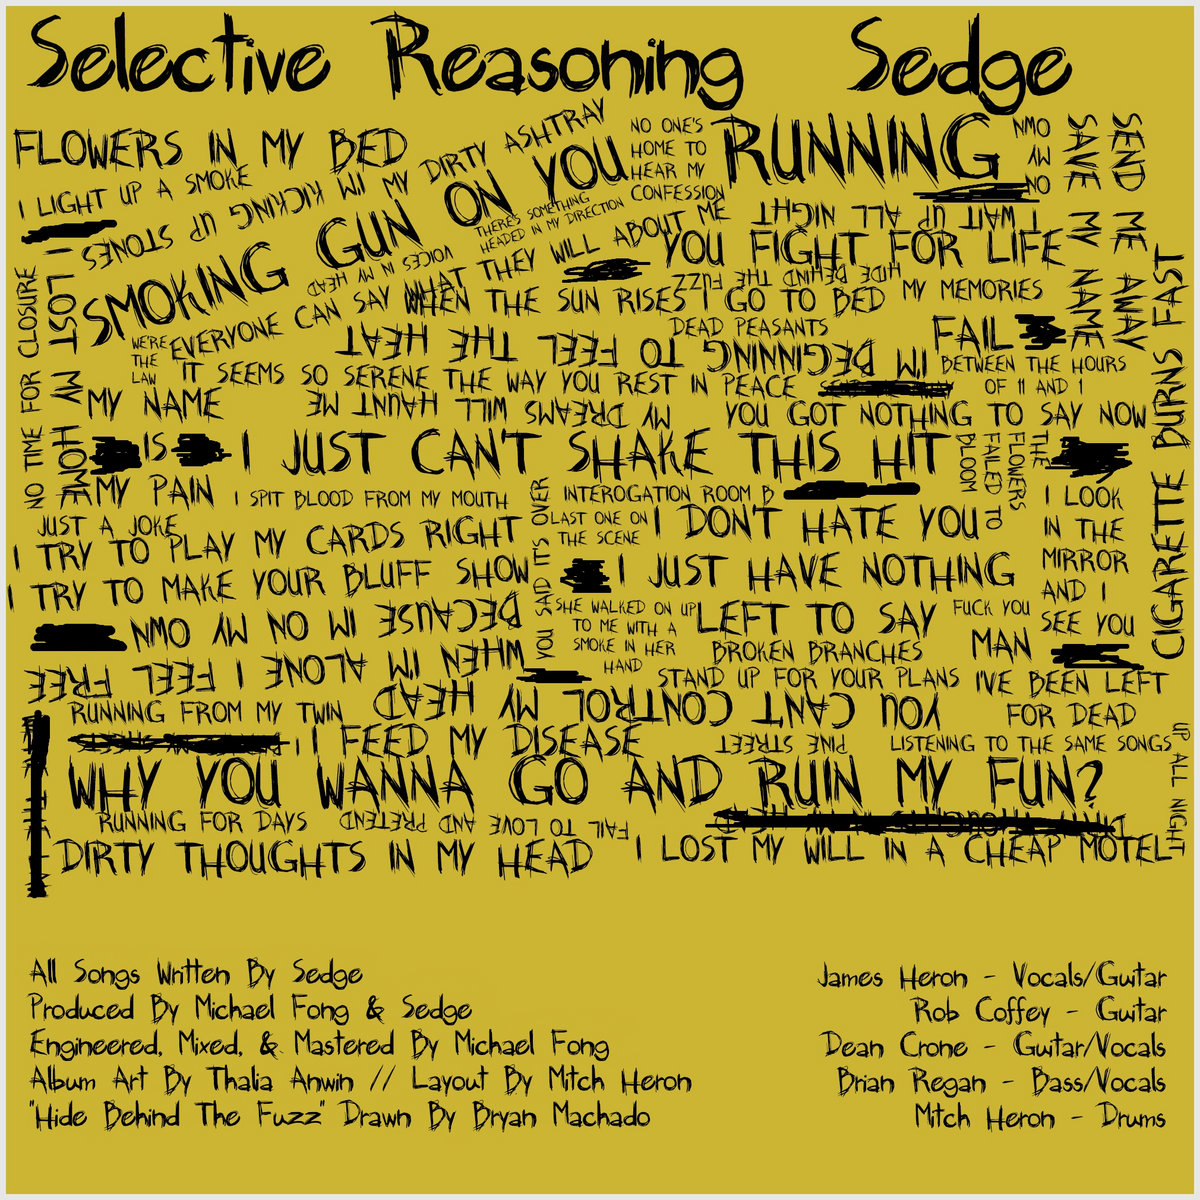 Selective Reasoning Sedge
FLOWERS IN MY BED
I LIGHT UP A SMOKE
I'M KICKING UP STONES
MY DIRTY ASHTRAY
SMOKING GUN ON YOU
NO ONE'S
HOME TO
HEAR MY
CONFESSION
RUNNING
ON MY OWN
SAVE MY NAME
SEND ME AWAY
THERE'S SOMETHING
HEADED IN MY DIRECTION
VOICES IN MY HEAD
I WAIT UP ALL NIGHT
YOU FIGHT FOR LIFE
NO TIME FOR CLOSURE
I LOST MY HOME
WE'RE
THE
LAW
EVERYONE CAN SAY WHAT THEY WILL ABOUT ME
HIDE BEHIND THE FUZZ
WHEN THE SUN RISES I GO TO BED
MY MEMORIES
DEAD PEASANTS
FAIL
I'M BEGINNING TO FEEL THE HEAT
BETWEEN THE HOURS
OF 11 AND 1
IT SEEMS SO SERENE THE WAY YOU REST IN PEACE
CIGARETTE BURNS FAST
MY NAME
IS
MY PAIN
MY DREAMS WILL HAUNT ME
YOU GOT NOTHING TO SAY NOW
I JUST CAN'T SHAKE THIS HIT
THE
FLOWERS
FAILED TO
BLOOM
I SPIT BLOOD FROM MY MOUTH
INTEROGATION ROOM B
I LOOK
IN THE
MIRROR
AND I
SEE YOU
JUST A JOKE
I TRY TO PLAY MY CARDS RIGHT
YOU SAID IT'S OVER
LAST ONE ON
THE SCENE
I DON'T HATE YOU
I TRY TO MAKE YOUR BLUFF SHOW
I JUST HAVE NOTHING
LEFT TO SAY
BECAUSE IM ON MY OWN
SHE WALKED ON UP
TO ME WITH A
SMOKE IN HER
HAND
FUCK YOU
MAN
BROKEN BRANCHES
WHEN I'M ALONE I FEEL FREE
STAND UP FOR YOUR PLANS
I'VE BEEN LEFT
FOR DEAD
YOU CAN'T CONTROL MY HEAD
RUNNING FROM MY TWIN
I FEED MY DISEASE
PINE STREET
LISTENING TO THE SAME SONGS
UP ALL NIGHT
WHY YOU WANNA GO AND RUIN MY FUN?
RUNNING FOR DAYS
FAIL TO LOVE AND PRETEND
DIRTY THOUGHTS IN MY HEAD
I LOST MY WILL IN A CHEAP MOTEL
All Songs Written By Sedge
Produced By Michael Fong & Sedge
Engineered, Mixed, & Mastered By Michael Fong
Album Art By Thalia Anwin // Layout By Mitch Heron
"Hide Behind The Fuzz" Drawn By Bryan Machado
James Heron - Vocals/Guitar
Rob Coffey - Guitar
Dean Crone - Guitar/Vocals
Brian Regan - Bass/Vocals
Mitch Heron - Drums